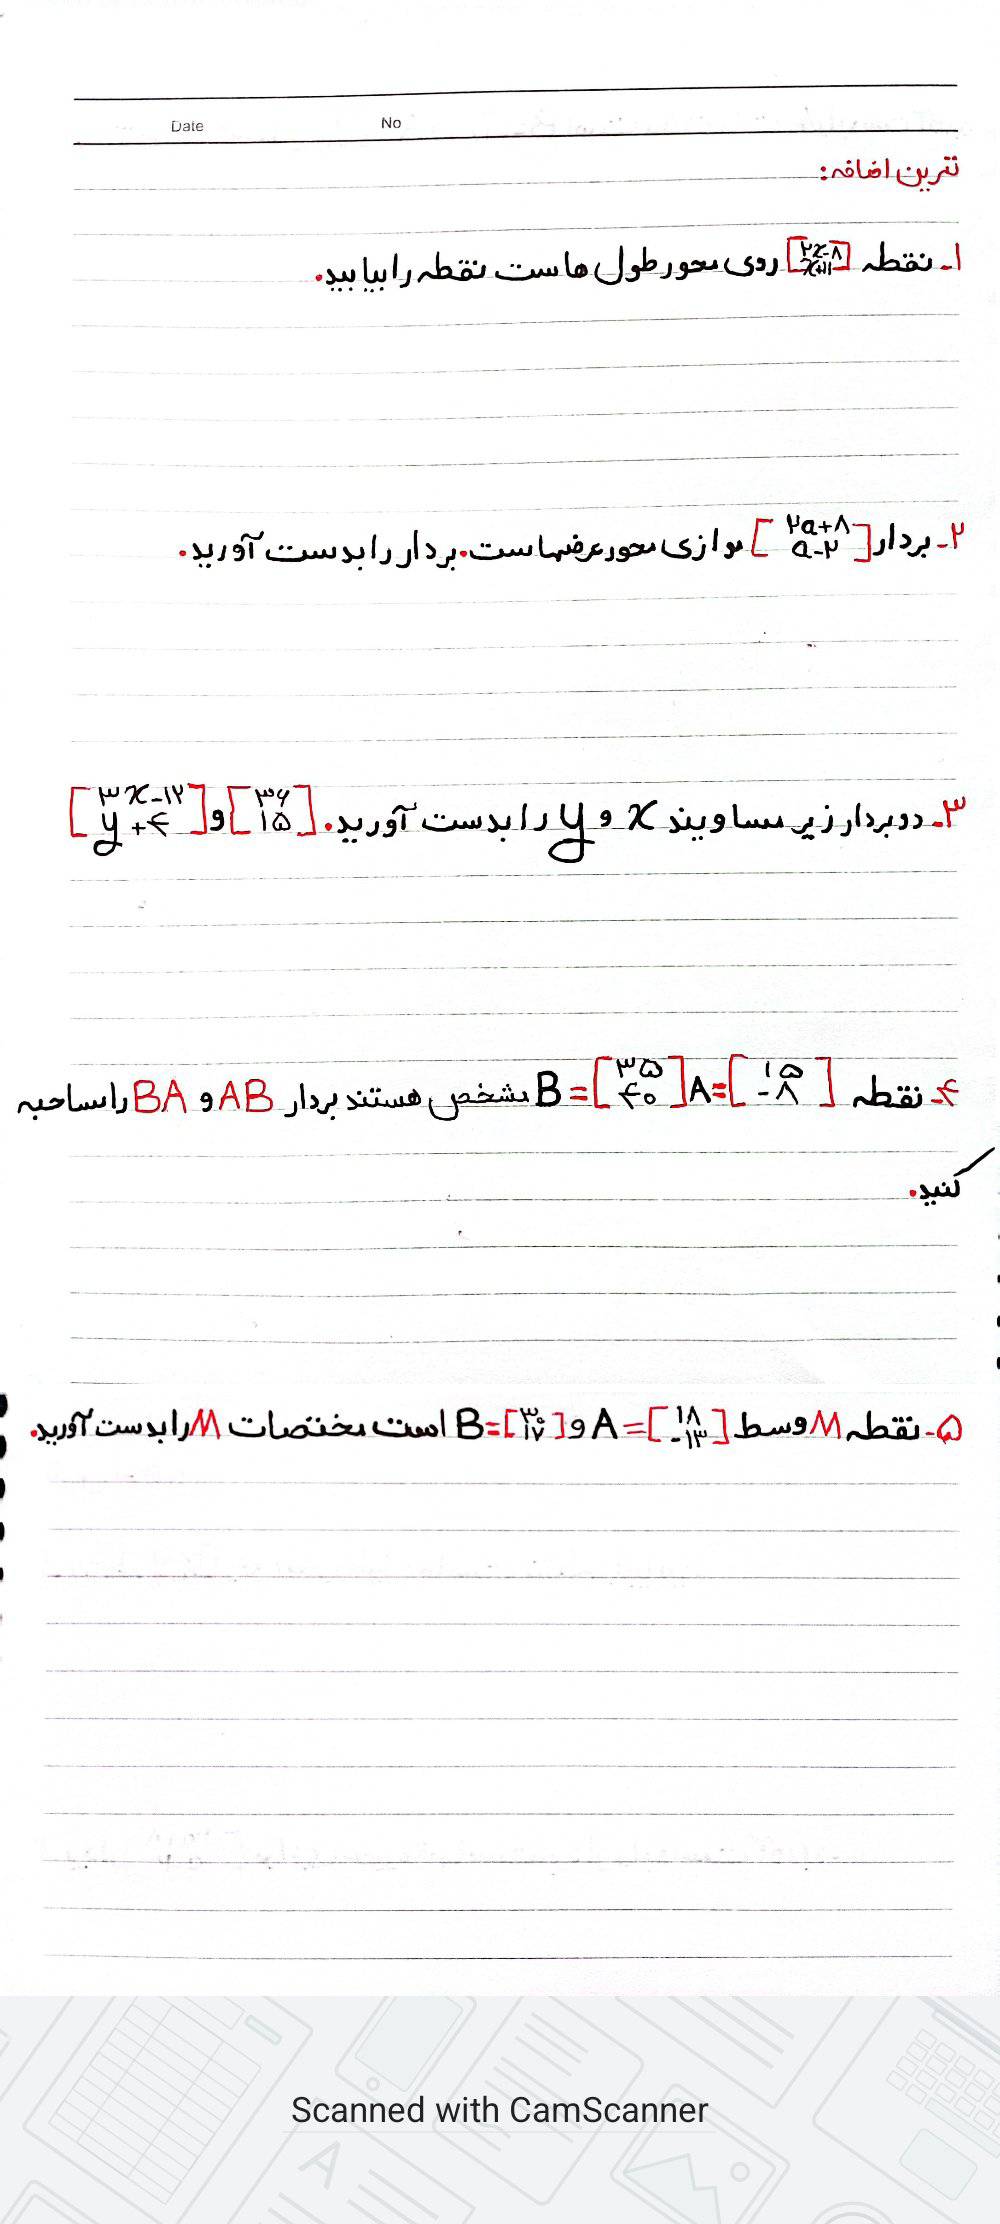 Date No
تمرین اضافه:
۱- نقطه [۲x-۸ x+۱۱] روی محور طول ها ست نقطه را بیابید.
۲- بردار [۲a+۸ a-۲] موازی محور عرضهاست. بردار را بدست آورید.
۳- دو بردار زیر مساویند x و y را بدست آورید. [۳۶ ۱۵] و [۳x-۱۲ y+۴]
۴- نقطه A=[۱۵ -۸] B=[۳۵ ۴۰] مشخص هستند بردار AB و BA را ساحبه
کنید.
۵- نقطه M وسط A=[۱۸ -۱۳] و B=[۳۰ ۱۷] است مختصات M را بدست آورید.
Scanned with CamScanner